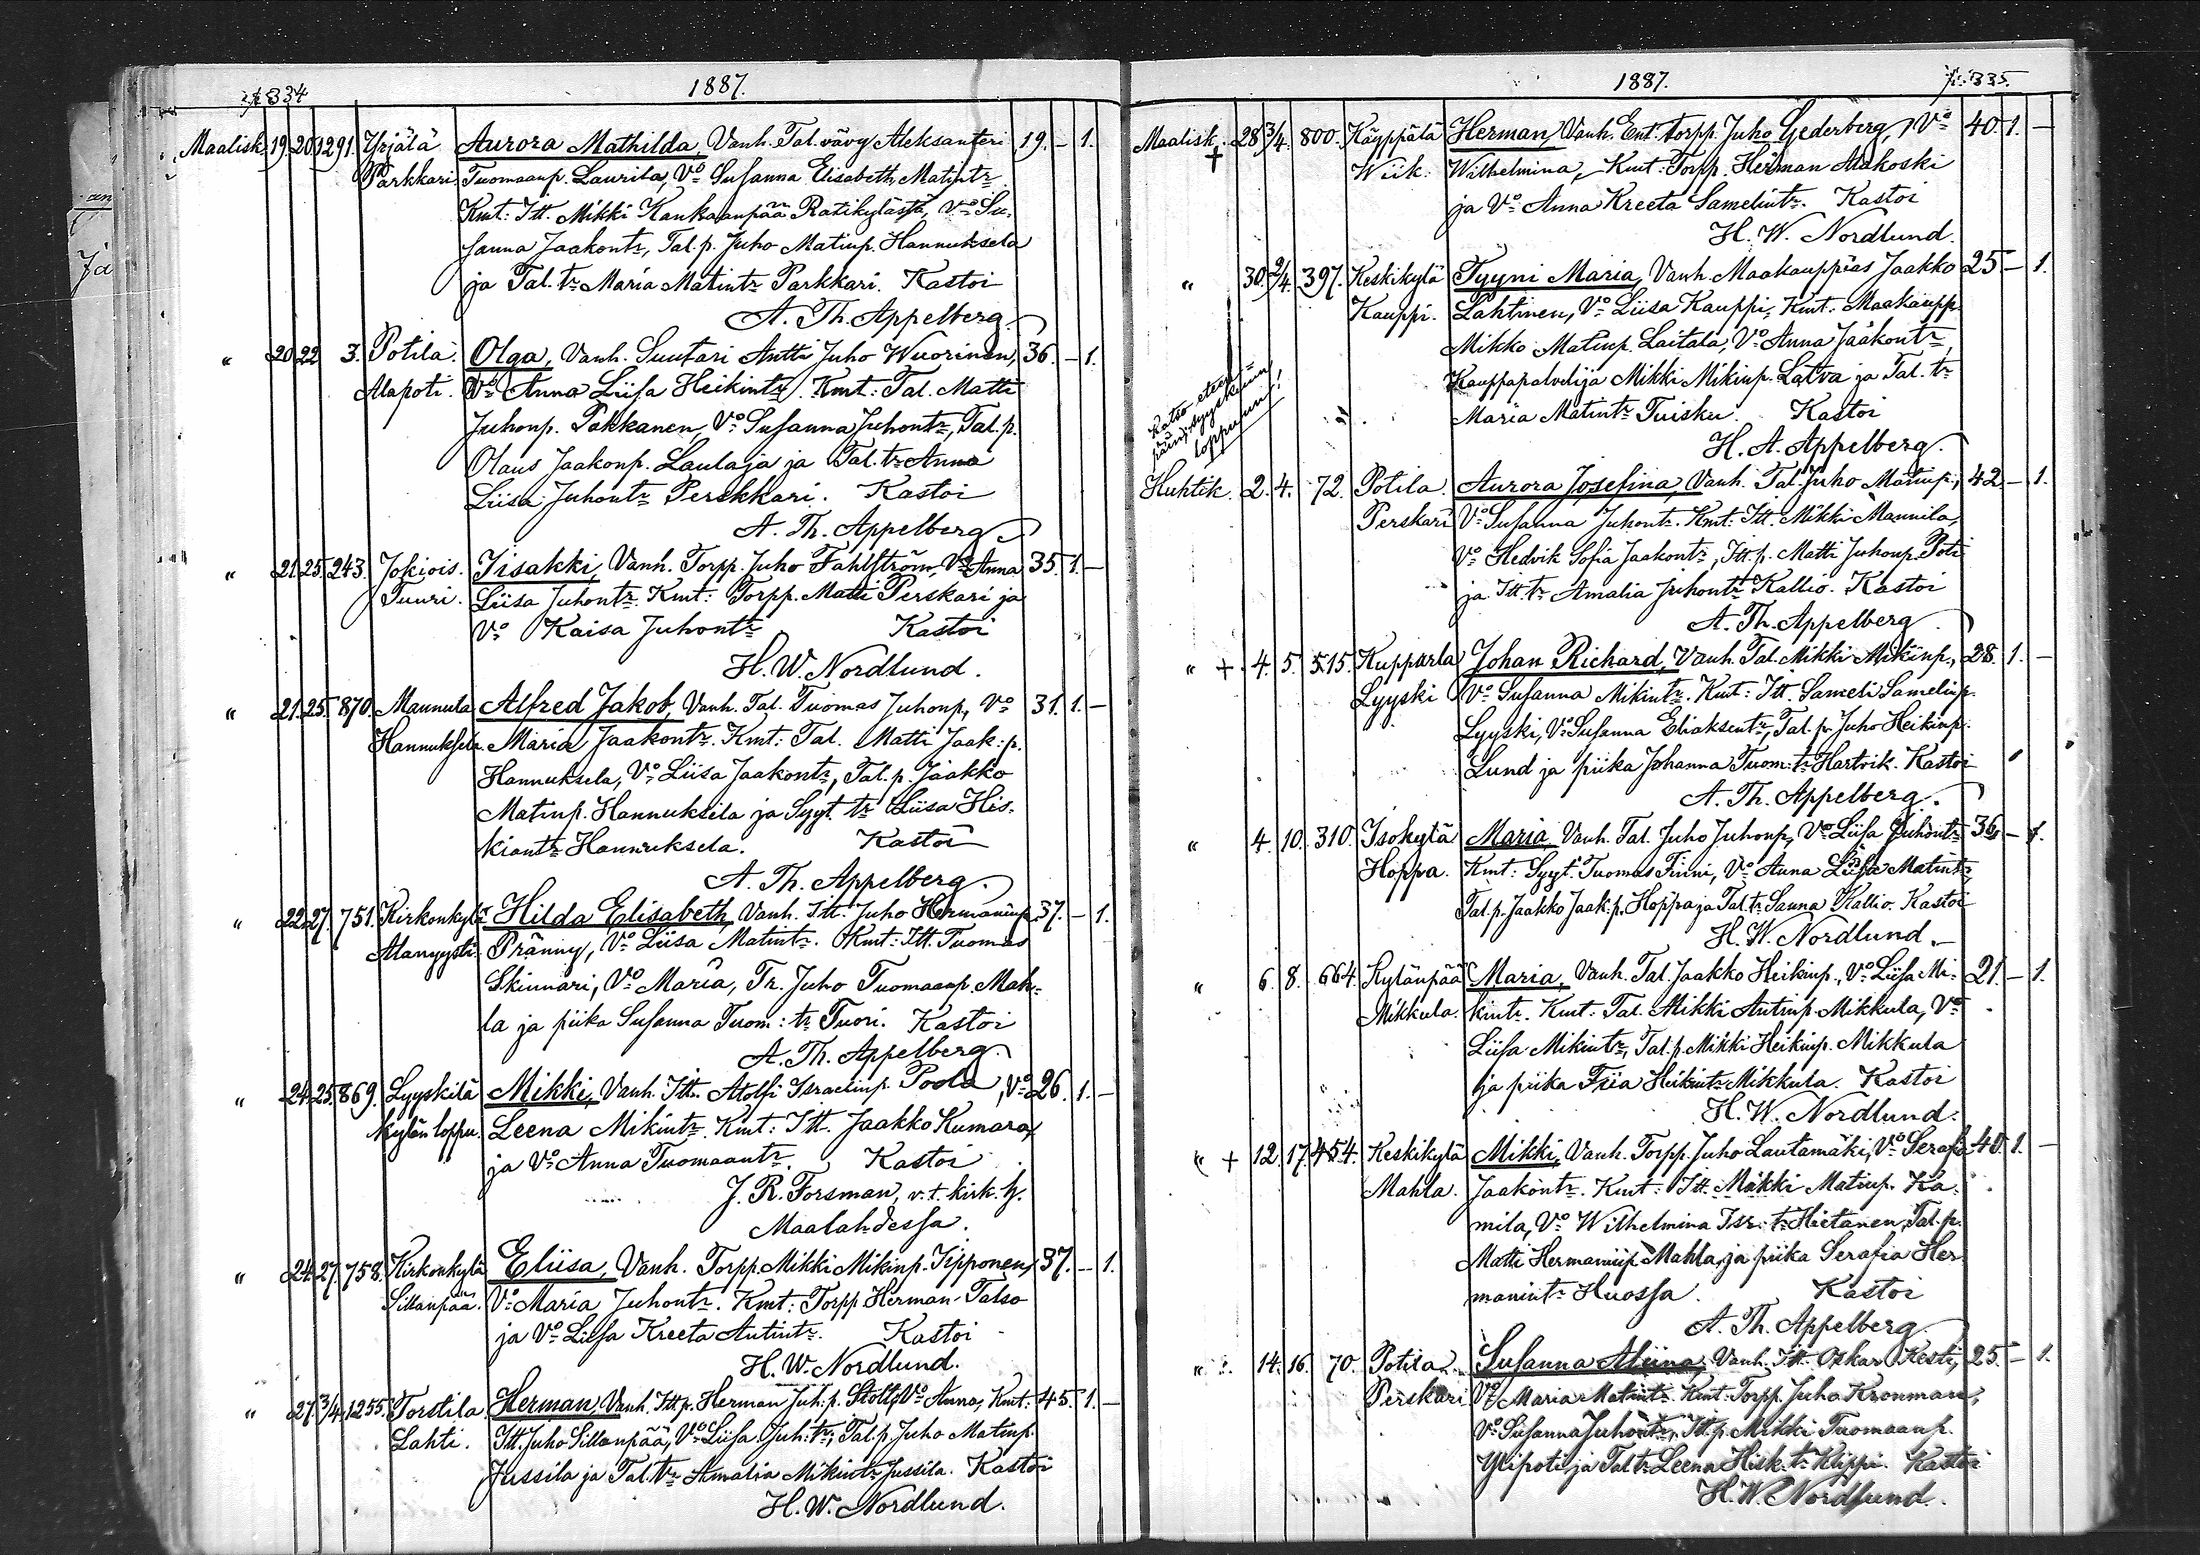 p. 334
1887.
Maalisk. 19. 20. 1291. Yrjälä Aurora Mathilda, Vanh. Tal. vävy Aleksanteri 19. – 1.
Parkkari. Tuomaanp. Laurila, Vo Susanna Elisabeth Matintr
Kmt: Itt. Mikki Kankaanpää Ratikylässä, Vo Su-
sanna Jaakontr, Tal. p. Juho Matinp. Hannuksela
ja Tal. tr Maria Matintr Parkkari. Kastoi
A. Th. Appelberg.
" 20 22 3. Potila. Olga, Vanh. Suutari Antti Juho Wuorinen, 36. – 1.
Alapoti. Vo Anna Liisa Heikintr. Kmt: Tal. Matti
Juhonp. Pakkanen, Vo Susanna Juhontr, Tal. p.
Olaus Jaakonp. Laulaja ja Tal. tr Anna
Liisa Juhontr Perskkari. Kastoi
A. Th. Appelberg.
" 21. 25. 243. Jokiois. Iisakki, Vanh. Torpp. Juho Fahlström, Vo Anna 35. 1. –
Tuuri. Liisa Juhontr. Kmt: Torpp. Matti Perskari ja
Vo Kaisa Juhontr Kastoi
H. W. Nordlund.
" 21. 25. 870. Mannula Alfred Jakob, Vanh. Tal. Tuomas Juhonp, Vo 31. 1. –
Hannuksela. Maria Jaakontr. Kmt: Tal. Matti Jaak: p.
Hannuksela, Vo Liisa Jaakontr, Tal. p. Jaakko
Matinp. Hannuksela ja Syyt. tr Liisa His-
kiantr Hannuksela. Kastoi
A. Th. Appelberg.
" 22. 27. 751. Kirkonkylä Hilda Elisabeth, Vanh. Itt. Juho Hermaninp 37. – 1.
Alanyysti. Pränny, Vo Liisa Matintr. Kmt: Itt. Tuomas
Skinnari, Vo Maria, Tr. Juho Tuomaanp. Mah-
la ja piika Susanna Tuom: tr Tuori. Kastoi
A. Th. Appelberg.
" 24. 25. 869. Lyyskilä Mikki, Vanh. Itt. Atolfi Israelinp. Poola, Vo 26. 1. –
kylän loppu. Leena Mikintr. Kmt: Itt. Jaakko Kumara,
ja Vo Anna Tuomaantr. Kastoi
J. R. Forsman, v. t. kirk. h.
Maalahdessa.
" 24. 27. 758. Kirkonkylä Eliisa, Vanh. Torpp. Mikki Mikinp. Jipponen, 37. – 1.
Sillanpää. Vo Maria Juhontr. Kmt: Torpp. Herman Talso
ja Vo Liisa Kreeta Antintr. Kastoi
H. W. Nordlund.
" 27. 3/4. 1255. Torstila Herman, Vanh. Itt. p. Herman Juh: p. Stolt, Vo Anna, Kmt: 45. 1. –
Lahti. Itt. Juho Sillanpää, Vo Liisa Juh: tr, Tal. p. Juho Matinp.
Jussila ja Tal. tr Amalia Mikintr Jussila. Kastoi
H. W. Nordlund.
1887.
p. 335.
Maalisk. + 28 3/4. 800. Käyppälä Herman, Vanh. Ent. torpp. Juho Gederberg, Vo 40. 1. –
Wiik. Wilhelmina, Kmt: Torpp. Herman Alakoski
ja Vo Anna Kreeta Samelintr. Kastoi
H. W. Nordlund.
" 30. 2/4. 397. Keskikylä Tyyni Maria, Vanh. Maakauppias Jaakko 25 – 1.
Kauppi. Lahtinen, Vo Liisa Kauppi, Kmt: Maakaupp.
Mikko Matinp. Laitala, Vo Anna Jaakontr,
Kauppapalvelija Mikki Mikinp. Latva ja Tal. tr
Maria Matintr Tuisku. Kastoi
H. A. Appelberg.
Katso eteen-
päin, syyskuun
loppuun!
Huhtik. 2. 4. 72. Potila. Aurora Josefina, Vanh. Tal. Juho Matinp., 42 – 1.
Perskari Vo Susanna Juhontr. Kmt: Itt. Mikki Mannila,
Vo Hedvik Sofia Jaakontr, Itt. p. Matti Juhonp. Poti
ja Itt. tr Amalia Juhontr Kallio. Kastoi
A. Th. Appelberg.
" + 4. 5. 515. Kupparla Johan Richard, Vanh. Tal. Mikki Mikinp., 28. 1. –
Lyyski Vo Susanna Mikintr. Kmt: Itt. Sameli Samelinp.
Lyyski, Vo Susanna Eliaksentr, Tal. p. Juho Heikinp.
Lund ja piika Johanna Tuom: tr Hartvik. Kastoi
A. Th. Appelberg.
" 4. 10. 310. Isokylä Maria, Vanh. Tal. Juho Juhonp., Vo Liisa Juhontr 36 – 1.
Hoppa. Kmt: Syyt. Tuomas Tiini, Vo Anna Liisa Matintr,
Tal. p. Jaakko Jaak: p. Hoppa ja Tal. tr Sanna Kallio. Kastoi
H. W. Nordlund.
" 6. 8. 664. Kylänpää Maria, Vanh. Tal. Jaakko Heikinp., Vo Liisa Mi- 21. – 1.
Mikkula. kintr. Kmt: Tal. Mikki Antinp. Mikkula, Vo
Liisa Mikintr, Tal. p. Mikki Heikinp. Mikkula
ja piika Fiia Heikintr Mikkula. Kastoi
H. W. Nordlund.
" + 12. 17. 454. Keskikylä Mikki, Vanh. Torpp. Juho Lautamäki, Vo Serafia 40. 1. –
Mahla. Jaakontr. Kmt: Itt. Mikki Matinp. Ka-
mila, Vo Wilhelmina Isr: tr Hietanen, Tal. p.
Matti Hermaninp. Mahla, ja piika Serafia Her-
manintr Huossa. Kastoi
A. Th. Appelberg.
" 14. 16. 70. Potila. Susanna Aliina, Vanh. Itt. Oskar Kesti, 25. – 1.
Perskari Vo Maria Matintr. Kmt. Torpp. Juho Kronman,
Vo Susanna Juhontr, Itt. p. Mikki Tuomaanp.
Ylipoti, ja Tal. tr Leena Hisk. tr Klippi. Kastoi
H. W. Nordlund.